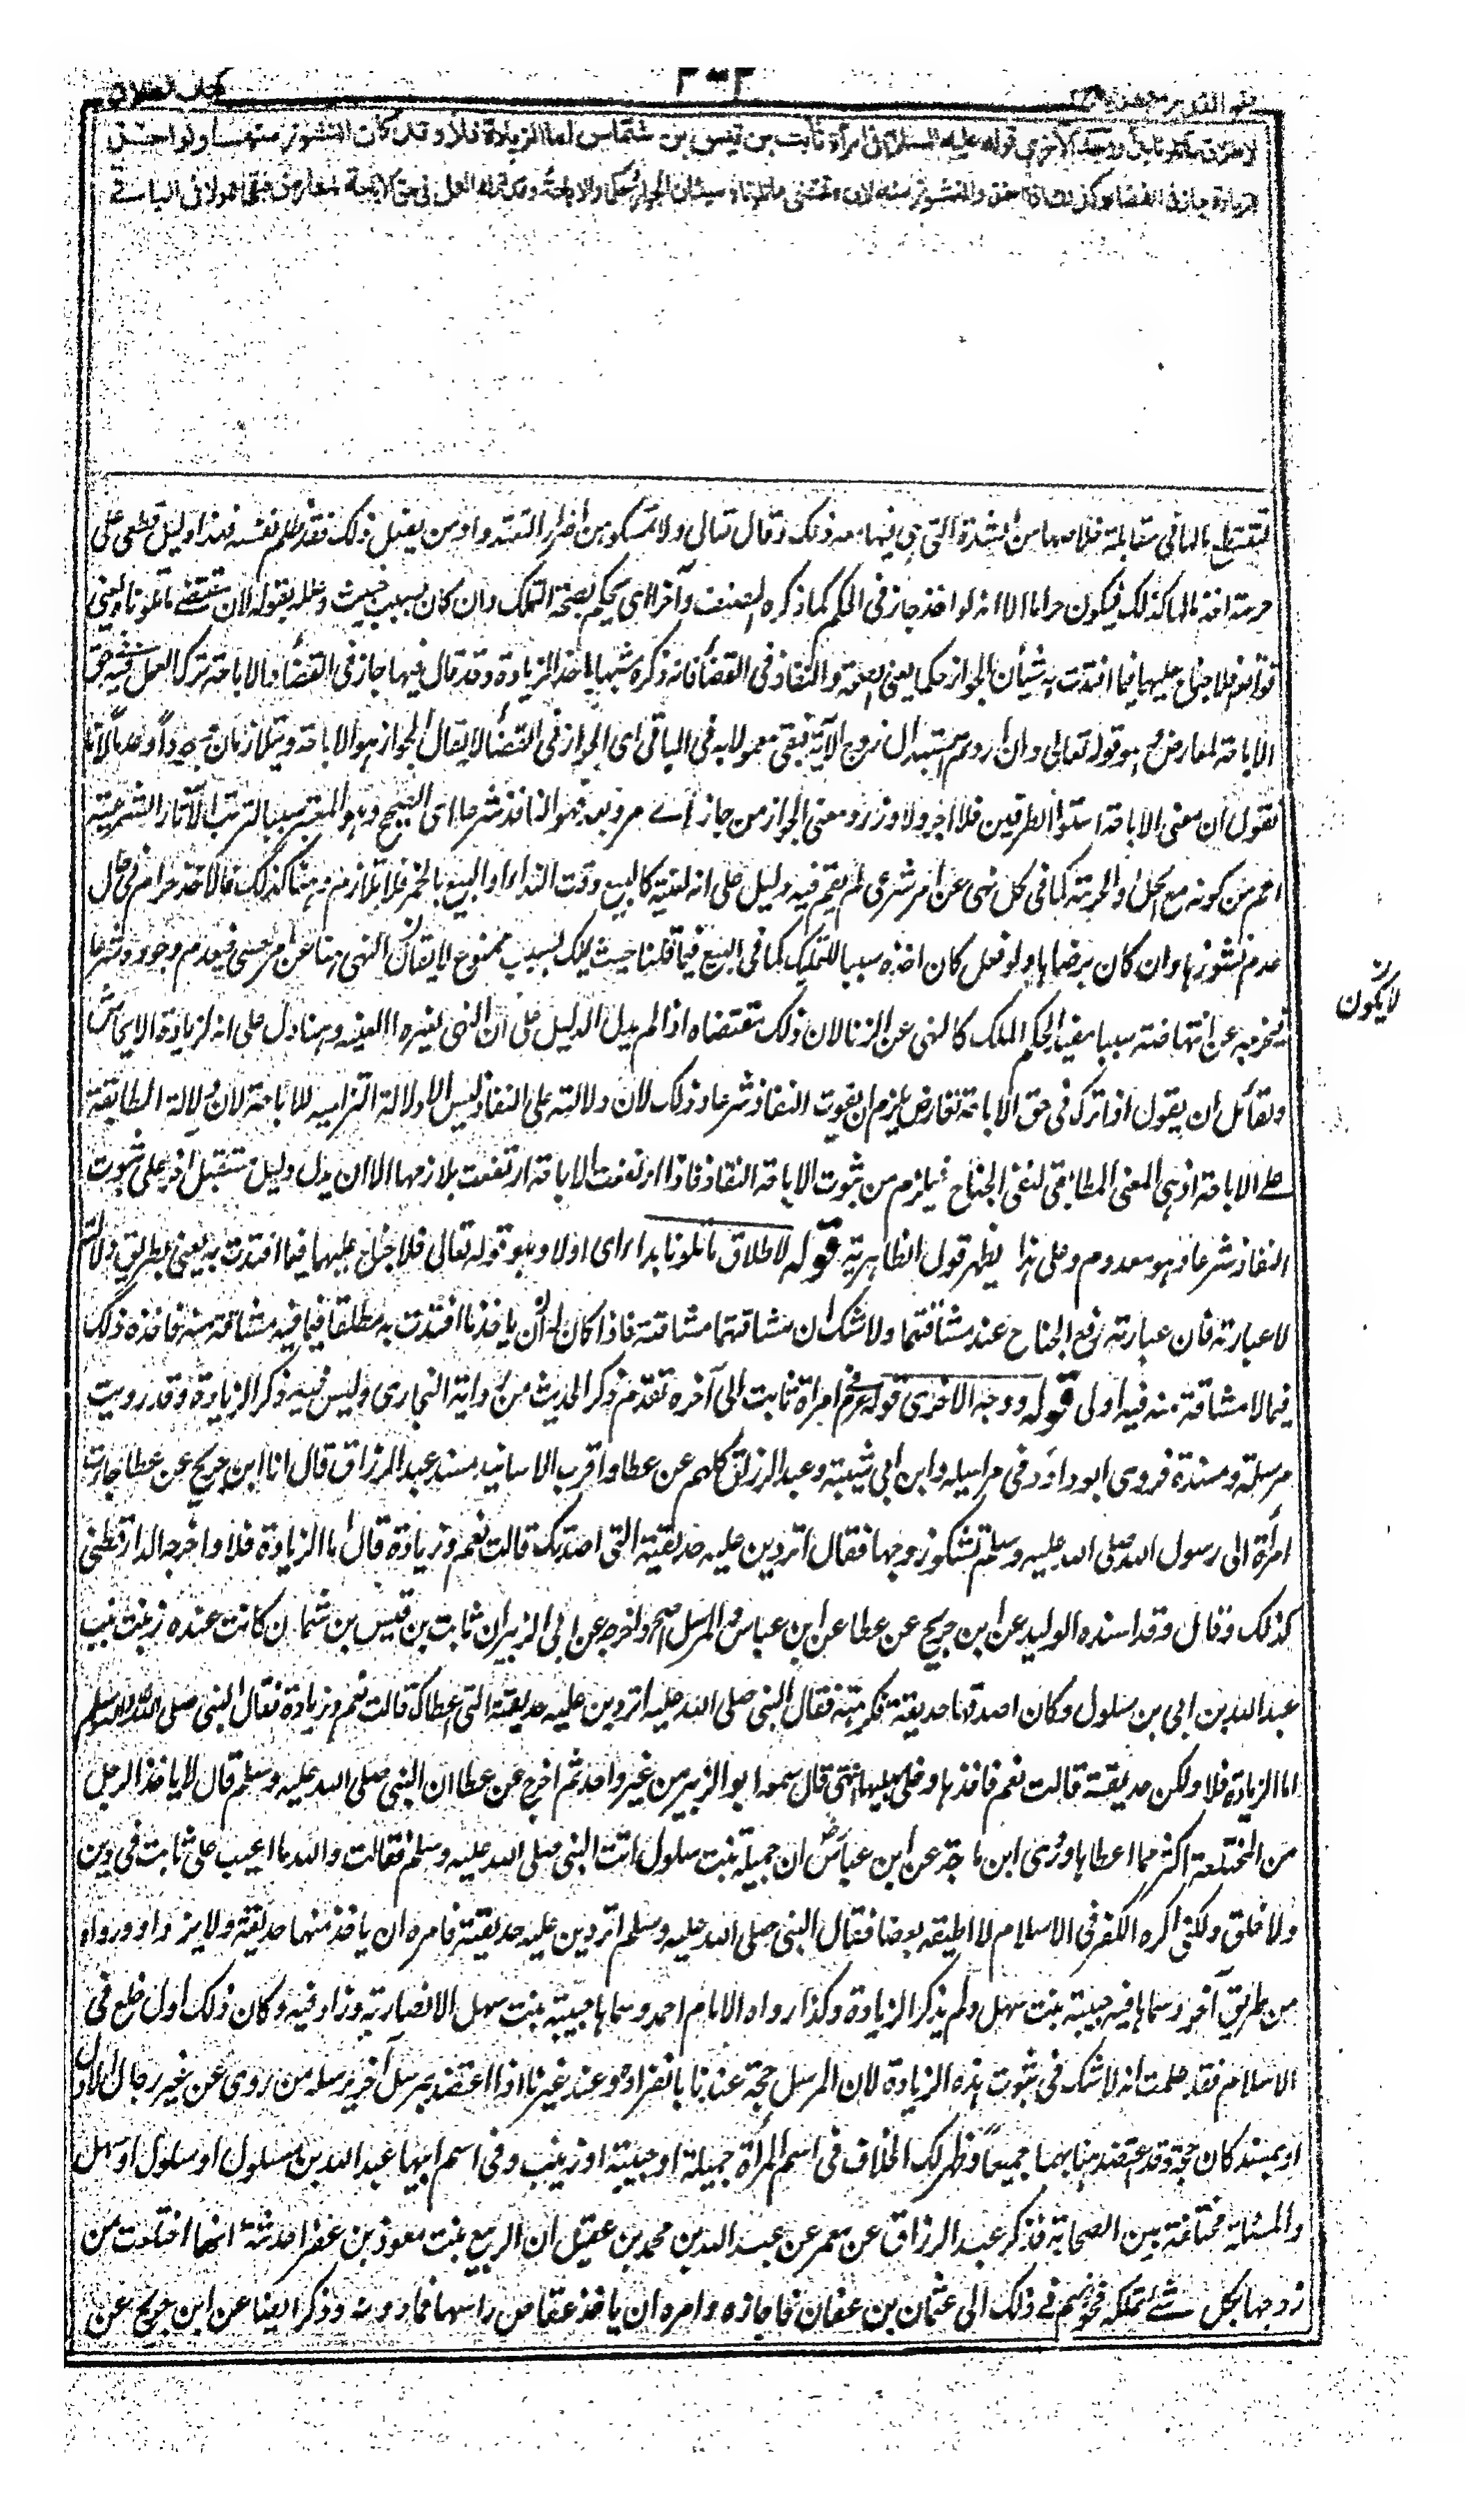 كتاب الطلاق
لاطلاق ما تلونا بدأ ووجه الاخرى قوله عليه السلام في امرأة ثابت بن قيس بن شماس اما الزيادة فلا وقد كان النشوز منها ولو اخذ
الزيادة جاز في القضاء وكذلك اذا اخذ والنشوز منه لان مقتضى ما تلونا شيئان الجواز حكما والاباحة وقد ترك العمل في حق الاباحة لمعارض فبقي معمولا في الباقي
لتقتطع مالها في مقابلة خلاصها من الشدة التي هي فيها معه ذلك وقال تعالى ولا تمسكوهن ضرارا لتعتدوا ومن يفعل ذلك فقد ظلم نفسه فهذا دليل قطعي على
حرمة اخذ مالها كذلك فيكون حراما الا انه لو اخذ جاز في الحكم كما ذكره المصنف وآخر اى يحكم بصحة التملك وان كان بسبب خبيث وعلله بقوله لان مقتضى ما تلونا يعني
قوله تعالى فلا جناح عليهما فيما افتدت به شيئان الجواز حكما يعني الصحة والنفاذ في القضاء فانه ذكره شبها باخذ الزيادة وقد قال فيها جاز في القضاء والاباحة ترك العمل فيه في حق
الاباحة لمعارض وهو قوله تعالى وان اردتم استبدال زوج الآية فبقي معمولا به في الباقي اى الجواز في القضاء لا يقال الجواز هو الاباحة ويتلازمان وجودا وعدما لانا
نقول ان معنى الاباحة استواء الطرفين فلا اجر ولا وزر ومعنى الجواز من جاز اے مر وبعد فهو النافذ شرعا اى الصحيح وهو المعتبر سببا لترتب الآثار الشرعية
اعم من كونه مع الحل او الحرمة كما في كل نهى عن امر شرعى لم يقم فيه دليل على انه لعينه كالبيع وقت النداء او البيع بالخمر فلا تلازم وهنا كذلك فالاخذ حرام في حال
عدم نشوزها وان كان برضاها ولو فعل كان اخذه سببا للتمليك كما في البيع فيما قلنا حيث يملك بسبب ممنوع لا يقال النهى هنا عن امر حسى فيعدم وجوده شرعا
فيخرج به عن انتهاضه سببا مفيدا لحكم الملك كالنهى عن الزنا لان ذلك مقتضاه اذا لم يدل الدليل على ان النهى لغيره لا لعينه وهنا دل على انه لزيادة الايحاش
ولقائل ان يقول اذا ترك في حق الاباحة لمعارض يلزم ان يفوت النفاذ شرعا وذلك لان دلالته على النفاذ ليس الا دلالة التزامية للاباحة لان دلالة المطابقة
على الاباحة اذ هى المعنى المطابقي لنفى الجناح فيلزم من ثبوت الاباحة النفاذ فاذا ارتفعت الاباحة ارتفعت بلازمها الا ان يدل دليل مستقبل آخر على ثبوت
النفاذ شرعا وهو معدوم وعلى هذا يظهر قول الظاهرية قوله لاطلاق ما تلونا بدءا اى اولا وهو قوله تعالى فلا جناح عليهما فيما افتدت به يعنى بطريق دلالته
لا عبارته فان عبارته رفع الجناح عند مشاقتهما ولا شك ان مشاقتهما مشاقته فاذا كان له ان ياخذ ما افتدت به مطلقا فيما فيه مشاقة منه فاخذه ذلك
فيما لا مشاقة منه فيه اولى قوله ووجه الاخرى قوله عم في امراة ثابت الى آخره تقدم ذكر الحديث من رواية البخارى وليس فيه ذكر الزيادة وقد رويت
مرسلة ومسندة فروى ابو داود في مراسيله وابن ابى شيبة وعبد الرزاق كلهم عن عطا واقرب الاسانيد مسند عبد الرزاق قال انا ابن جريج عن عطا جاءت
امرأة الى رسول الله صلى الله عليه وسلم تشكو زوجها فقال اتردين عليه حديقته التى اصدقك قالت نعم وزيادة قال اما الزيادة فلا واخرجه الدارقطنى
كذلك وقال وقد اسنده الوليد عن ابن جريج عن عطا عن ابن عباس والمرسل اصح واخرجه عن ابى الزبير ان ثابت بن قيس بن شماس كانت عنده زينب بنت
عبد الله بن ابى بن سلول وكان اصدقها حديقة فكرهته فقال النبى صلى الله عليه اتردين عليه حديقته التى اعطاك قالت نعم وزيادة فقال النبى صلى الله عليه وسلم
اما الزيادة فلا ولكن حديقته قالت نعم فاخذها وخلى سبيلها انتهى قال سمعه ابو الزبير من غير واحد ثم اخرج عن عطا ان النبى صلى الله عليه وسلم قال لا ياخذ الرجل
من المختلعة اكثر مما اعطاها وروى ابن ماجة عن ابن عباس ان جميلة بنت سلول اتت النبى صلى الله عليه وسلم فقالت والله ما اعيب على ثابت في دين
ولا خلق ولكنى اكره الكفر في الاسلام لا اطيقه بغضا فقال النبى صلى الله عليه وسلم اتردين عليه حديقته فامره ان ياخذ منها حديقته ولا يزداد ورواه
من طريق آخر وسماها فيه حبيبة بنت سهل ولم يذكر الزيادة وكذا رواه الامام احمد وسماها حبيبة بنت سهل الانصارية وزاد فيه وكان ذلك اول خلع في
الاسلام فقد علمت انه لا شك في ثبوت هذه الزيادة لان المرسل حجة عندنا بانفراده وعند غيرنا اذا اعتضد بمرسل آخر يرسله من روى عن غير رجال الاول
او بمسند كان حجة وقد اعتضد هنا بهما جميعا وظهر لك الخلاف في اسم المرأة جميلة او حبيبة او زينب وفى اسم ابيها عبد الله بن سلول او سلول او سهل
والمسئلة مختلفة بين الصحابة فذكر عبد الرزاق عن معمر عن عبد الله بن محمد بن عقيل ان الربيع بنت معوذ بن عفرا حدثته انها اختلعت من
زوجها بكل شئ تملكه فخوصم في ذلك الى عثمان بن عفان فاجازه وامره ان ياخذ عقاص راسها فما دونه وذكر ايضا عن ابن جريج عن
لا يكون